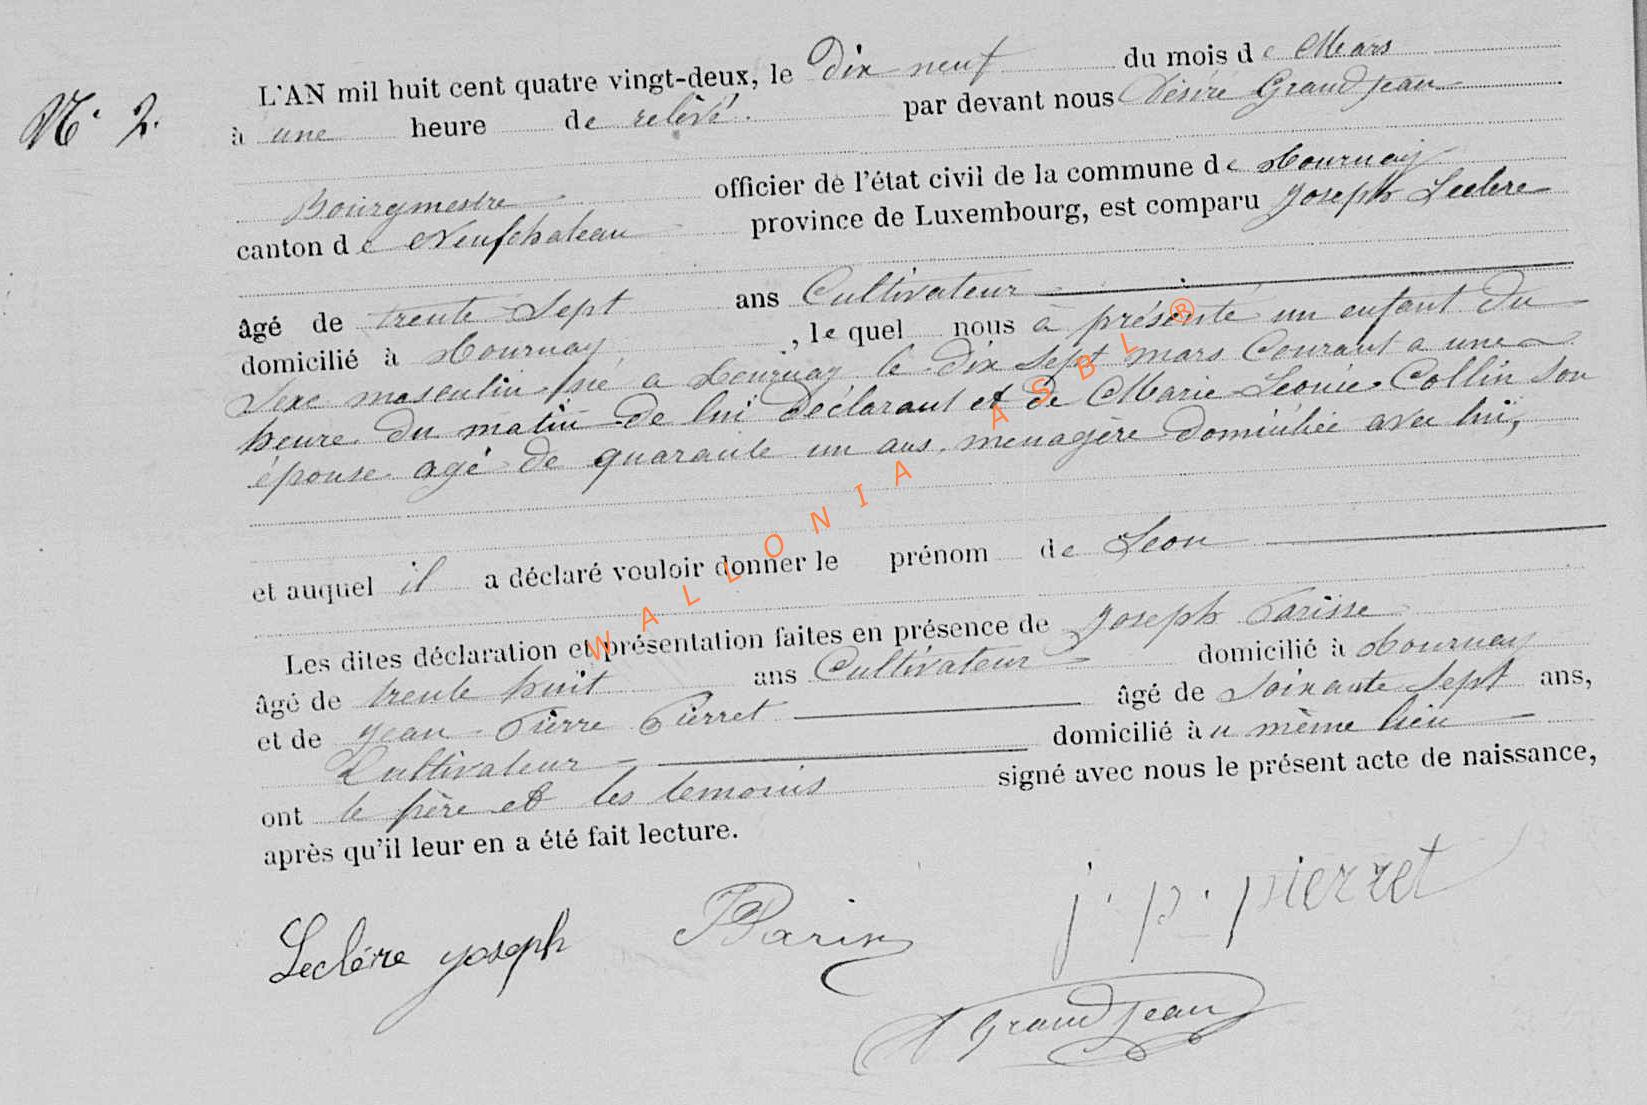 N° 2.
L'AN mil huit cent quatre vingt-deux, le Dix neuf du mois de Mars
à une heure de relevé. par devant nous Désiré Grandjean
Bourgmestre officier de l'état civil de la commune de Tournay
canton de Neufchateau province de Luxembourg, est comparu Joseph Leclere
âgé de trente Sept ans Cultivateur
domicilié à Tournay, le quel nous a présenté un enfant Du
Sexe masculin, né a Tournay le Dix Sept mars Courant a une
heure Du matin De lui Déclarant et De Marie Léonie Collin Son
épouse agé De quarante un ans, menagère Domiciliée avec lui,
et auquel il a déclaré vouloir donner le prénom de Leon
Les dites déclaration et présentation faites en présence de Joseph Parisse
âgé de trente huit ans Cultivateur domicilié à Tournay
et de Jean Pierre Pierret âgé de Soixante Sept ans,
Cultivateur domicilié àu même lieu
ont le père et les temoins signé avec nous le présent acte de naissance,
après qu'il leur en a été fait lecture.
Leclére joseph
j. p. pierret
Grandjean
WALLONIA ASBL ®